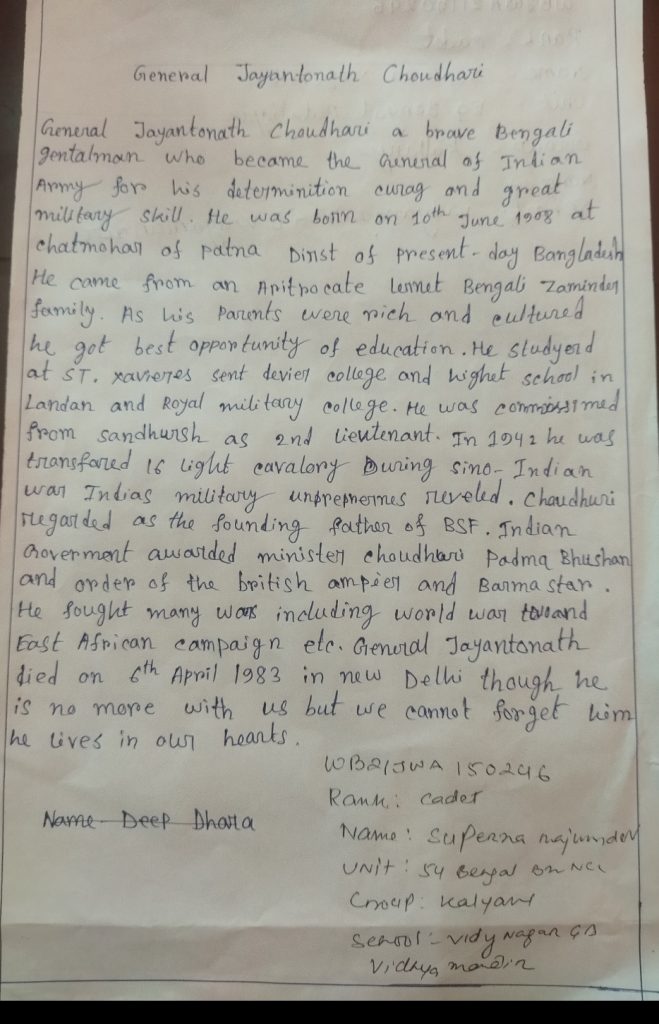 General Jayantonath Choudhari
General Jayantonath Choudhari a brave Bengali
gentalman who became the General of Indian
Army for his determinition curag and great
military skill. He was born on 10th June 1908 at
chatmohar of patna Dirist of present-day Bangladesh
He came from an Aritrocate lernet Bengali Zaminder
family. As his Parents were rich and cultured
he got best opportunity of education. He studyerd
at ST. xavieres sent devier college and highet school in
Landan and Royal military college. He was commissimed
from sandhursh as 2nd lieutenant. In 1942 he was
transfared 16 light cavalory During sino-Indian
war Indias military unpreprernes reveled. Chaudhuri
regarded as the founding father of BSF. Indian
Goverment awarded minister choudhari Padma Bhushan
and order of the british ampier and Barma star.
He fought many wars including world war and
East African campaign etc. General Jayantonath
died on 6th April 1983 in new Delhi though he
is no more with us but we cannot forget him
he lives in our hearts.
WB21JWA150246
Rank: cadet
Name Deep Dhara
Name: Superna majumder
UNit: 54 Bengal Bn NCC
Group: Kalyani
School:- vidy Nagar GB
Vidhya mandir